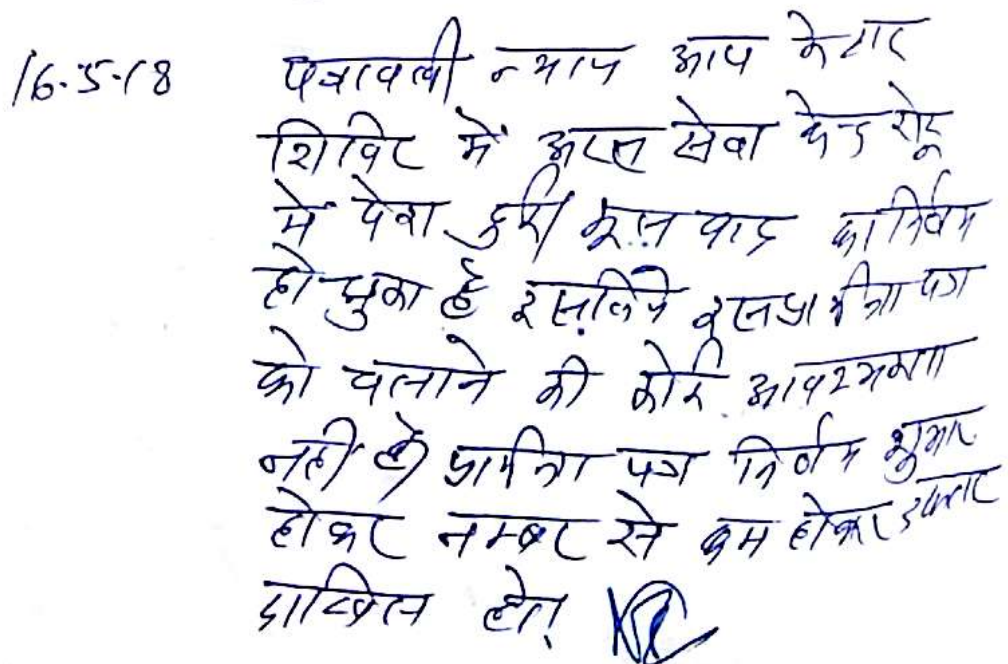 16.5.18 पत्रावली न्याय आप के द्वार
शिविर में अटल सेवा केन्द्र रोडू
में पेश हुई। मूल वाद का निर्णय
हो चुका है इसलिये इस प्रार्थना पत्र
को चलाने की कोई आवश्यकता
नही है। प्रार्थना पत्र निर्णय शुमार
होकर नम्बर से कम होकर दफ्तर
दाखिल हो।